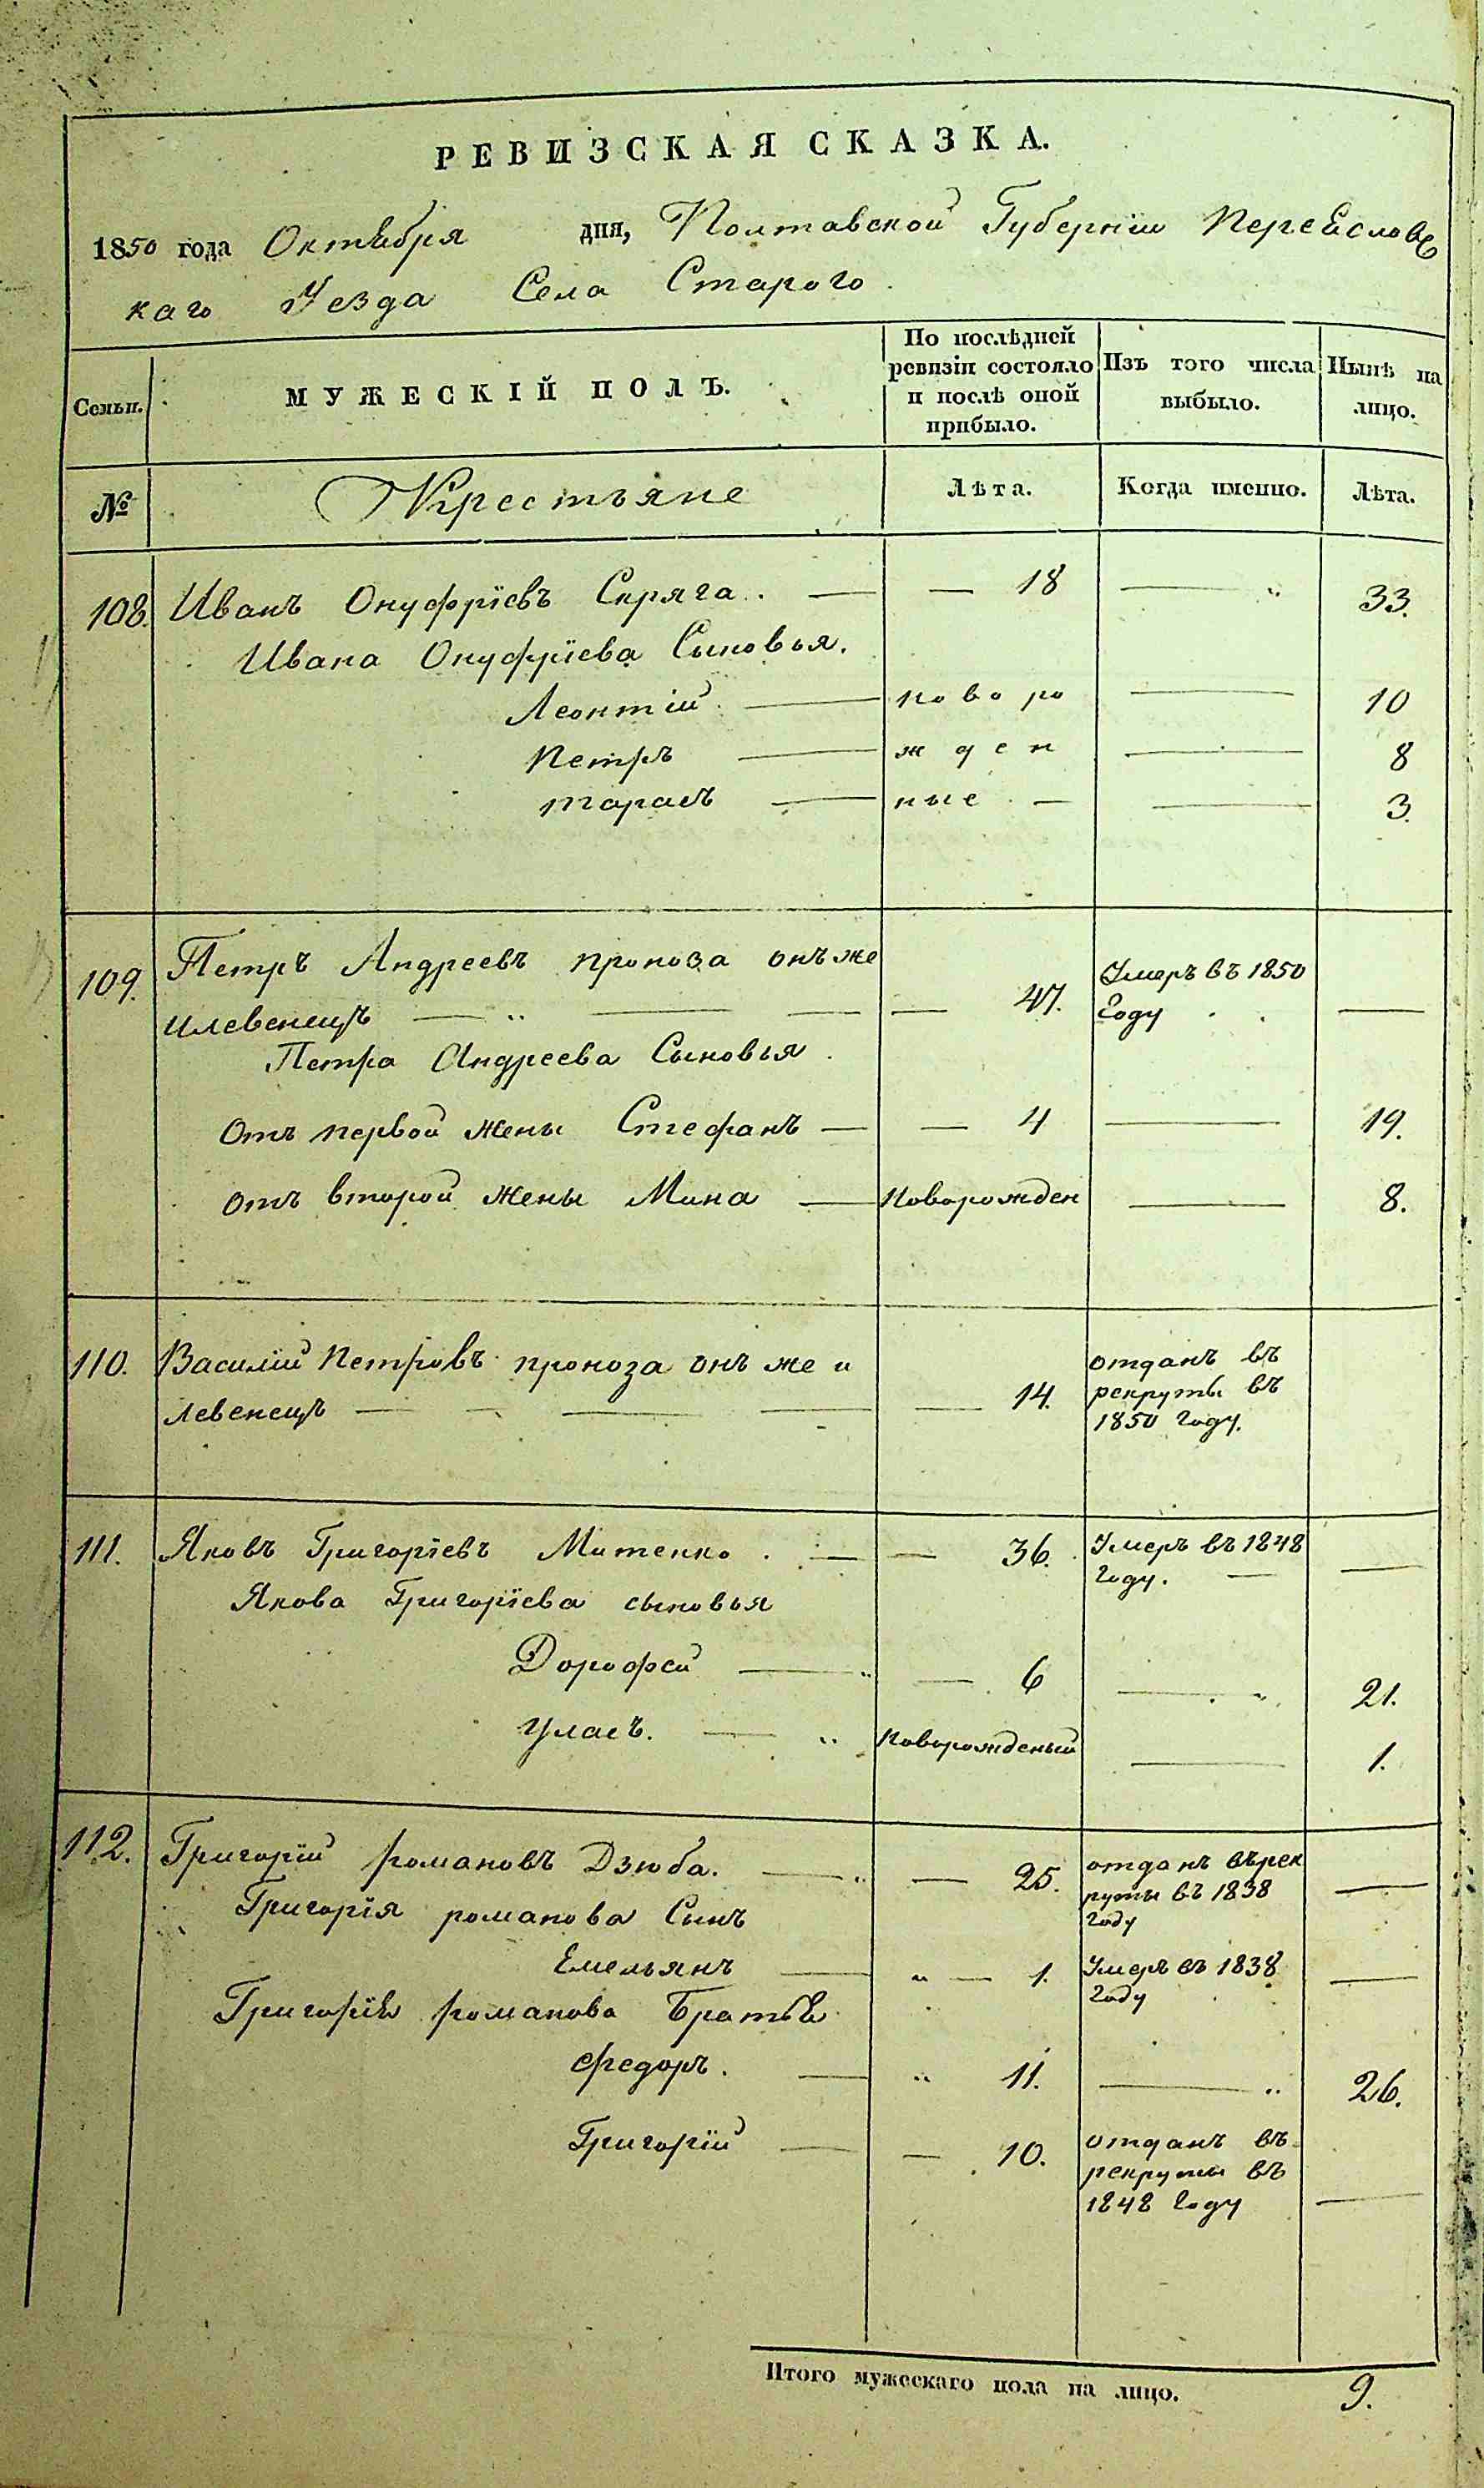 РЕВИЗСКАЯ СКАЗКА.
1850 года Октября дня, Полтавской Губернiи Переяславс
каго Уезда Села Старого.
Семьи. МУЖЕСКІЙ ПОЛЪ. По послѣдней ревизіи состояло и послѣ оной прибыло. Изъ того числа выбыло. Нынѣ на лицо.
№ Крестьяне Лѣта. Когда именно. Лѣта.
108. Иванъ Онуфрїевъ Скряга. — — 18 — 33.
Ивана Онуфрїева Сыновья.
Леонтій — новоро — 10
Петръ — жден — 8
Тарасъ — ные — — 3.
109. Петръ Андреевъ проноза онъже
илевенецъ — — 47. Умеръ въ 1850 Году —
Петра Андреева Сыновья
Отъ первой жены Стефанъ — — 4 — 19.
отъ второй жены Мина — Новорожден — 8.
110. Василїй Петровъ проноза онъ же и
левенецъ — — 14. отданъ въ рекруты въ 1850 году.
111. Яковъ Григорїевъ Митенко. — — 36. Умеръ въ 1848 году. — —
Якова Григорїева сыновья
Дорофей — — 6 — 21.
Уласъ. — Новорожденый — 1.
112. Григорїй романовъ Дзюба. — — 25. отданъ въ рек руты въ 1838 году —
Григорїя романова Сынъ
Емельянъ — — 1. Умеръ въ 1838 году —
Григорїя романова Братья
Федоръ. — 11. — 26.
Григорїй — — 10. отданъ въ рекруты въ 1848 году —
Итого мужескаго пола на лицо. 9.